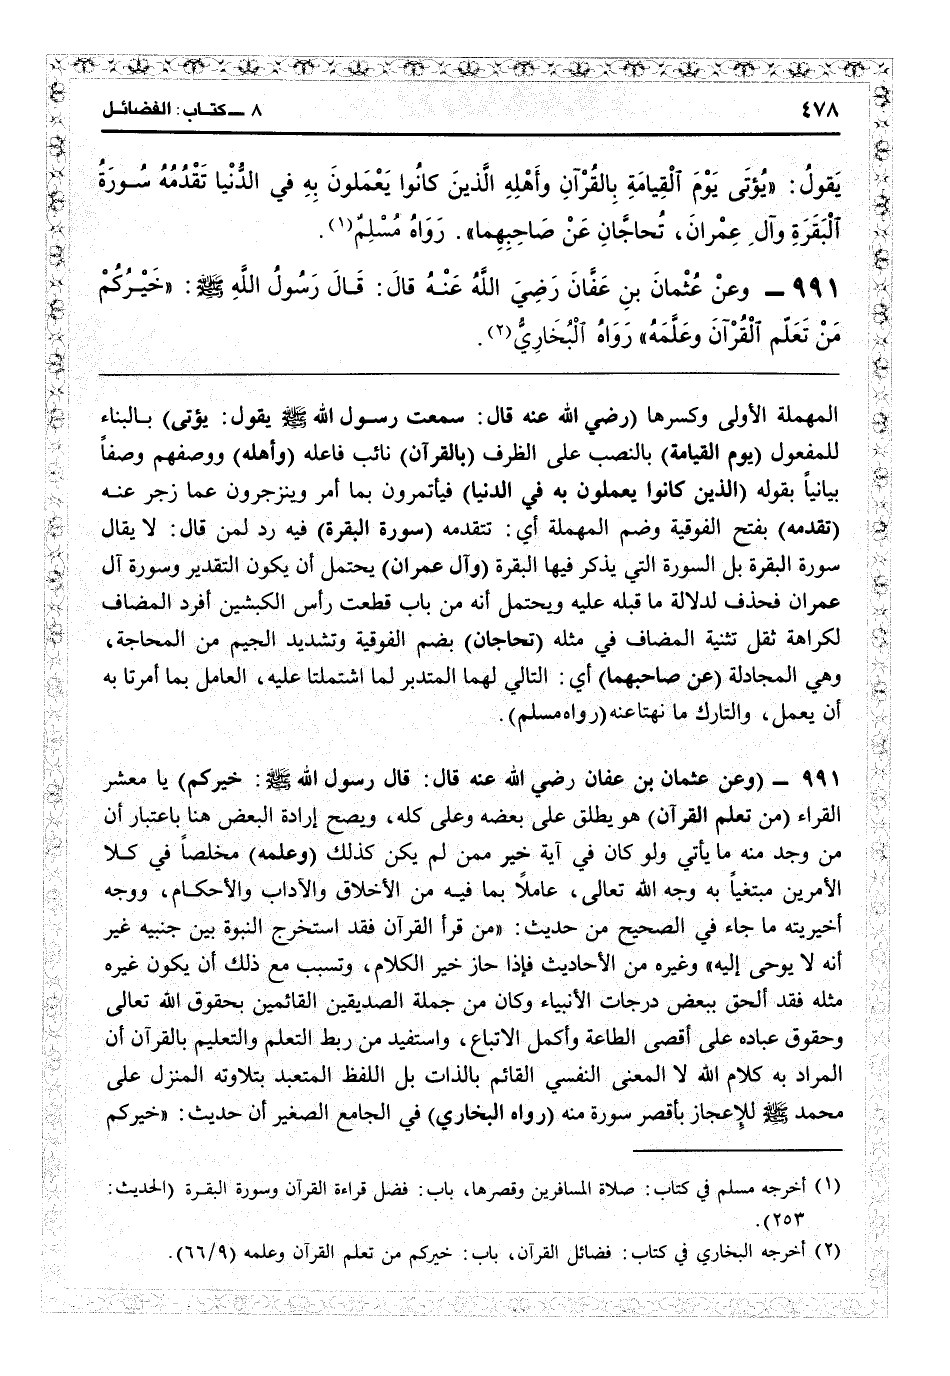 ٤٧٨
٨ ــ كتاب: الفضائل
يَقولُ: «يُؤتَى يَوْمَ ٱلْقِيامَةِ بِالقُرْآنِ وأَهْلِهِ الَّذينَ كانُوا يَعْمَلونَ بِهِ في الدُّنْيا تَقْدُمُهُ سُورَةُ
ٱلْبَقَرَةِ وآلِ عِمْرانَ، تُحاجَّانِ عَنْ صَاحِبِهِما». رَوَاهُ مُسْلِمٌ(١).
٩٩١ ــ وعنْ عُثْمانَ بنِ عَفَّانَ رَضِيَ اللَّهُ عَنْهُ قالَ: قَالَ رَسُولُ اللَّهِ ﷺ: «خَيْرُكُمْ
مَنْ تَعَلَّم ٱلْقُرْآنَ وعَلَّمَهُ» رَوَاهُ ٱلْبُخَارِيُّ(٢).
المهملة الأولى وكسرها (رضي الله عنه قال: سمعت رسول الله ﷺ يقول: يؤتى) بالبناء
للمفعول (يوم القيامة) بالنصب على الظرف (بالقرآن) نائب فاعله (وأهله) ووصفهم وصفاً
بيانياً بقوله (الذين كانوا يعملون به في الدنيا) فيأتمرون بما أمر وينزجرون عما زجر عنه
(تقدمه) بفتح الفوقية وضم المهملة أي: تتقدمه (سورة البقرة) فيه رد لمن قال: لا يقال
سورة البقرة بل السورة التي يذكر فيها البقرة (وآل عمران) يحتمل أن يكون التقدير وسورة آل
عمران فحذف لدلالة ما قبله عليه ويحتمل أنه من باب قطعت رأس الكبشين أفرد المضاف
لكراهة ثقل تثنية المضاف في مثله (تحاجان) بضم الفوقية وتشديد الجيم من المحاجة،
وهي المجادلة (عن صاحبهما) أي: التالي لهما المتدبر لما اشتملتا عليه، العامل بما أمرتا به
أن يعمل، والتارك ما نهتا عنه (رواه مسلم).
٩٩١ ــ (وعن عثمان بن عفان رضي الله عنه قال: قال رسول الله ﷺ: خيركم) يا معشر
القراء (من تعلم القرآن) هو يطلق على بعضه وعلى كله، ويصح إرادة البعض هنا باعتبار أن
من وجد منه ما يأتي ولو كان في آية خير ممن لم يكن كذلك (وعلمه) مخلصاً في كلا
الأمرين مبتغياً به وجه الله تعالى، عاملاً بما فيه من الأخلاق والآداب والأحكام، ووجه
أخيريته ما جاء في الصحيح من حديث: «من قرأ القرآن فقد استخرج النبوة بين جنبيه غير
أنه لا يوحى إليه» وغيره من الأحاديث فإذا حاز خير الكلام، وتسبب مع ذلك أن يكون غيره
مثله فقد ألحق ببعض درجات الأنبياء وكان من جملة الصديقين القائمين بحقوق الله تعالى
وحقوق عباده على أقصى الطاعة وأكمل الاتباع، واستفيد من ربط التعلم والتعليم بالقرآن أن
المراد به كلام الله لا المعنى النفسي القائم بالذات بل اللفظ المتعبد بتلاوته المنزل على
محمد ﷺ للإعجاز بأقصر سورة منه (رواه البخاري) في الجامع الصغير أن حديث: «خيركم
(١) أخرجه مسلم في كتاب: صلاة المسافرين وقصرها، باب: فضل قراءة القرآن وسورة البقرة (الحديث:
٢٥٣).
(٢) أخرجه البخاري في كتاب: فضائل القرآن، باب: خيركم من تعلم القرآن وعلمه (٦٦/٩).